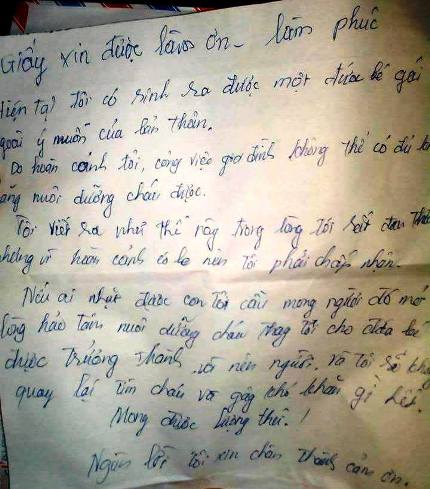 Giấy xin được làm ơn - làm phúc
Hiện tại tôi có sinh ra được một đứa bé gái
ngoài ý muốn của bản thân.
Do hoàn cảnh tôi, công việc gia đình không thể có đủ
năng nuôi dưỡng cháu được.
Tôi viết ra như thế này trong lòng tôi rất đau
nhưng vì hoàn cảnh nên tôi phải chấp nhận.
Nếu ai nhặt được con tôi cầu mong người đó mở
lòng hảo tâm nuôi dưỡng cháu thay tôi cho đứa bé
được trưởng thành và nên người. Và tôi sẽ
quay lại tìm cháu và gây khó khăn gì hết.
Mong được lượng thứ.!
Ngàn lời tôi xin chân thành cảm ơn.